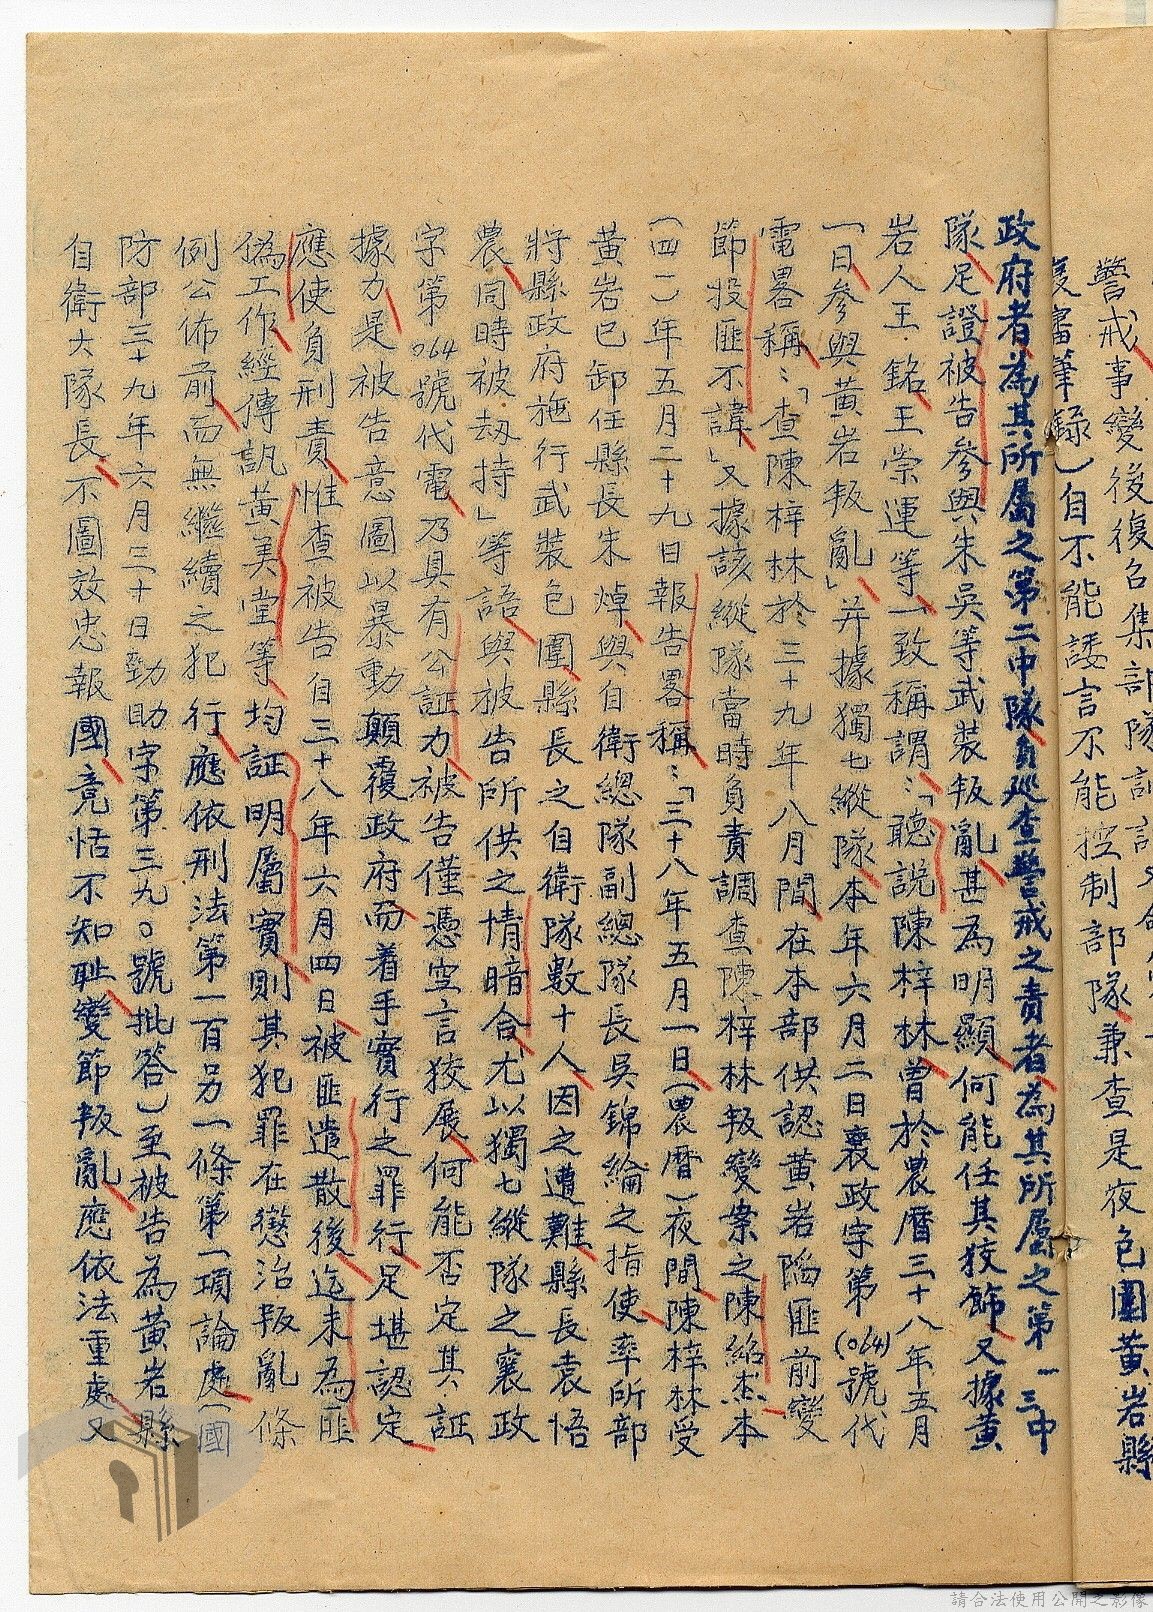 警戒事變後復召集部隊
復審筆錄）自不能諉言不能控制部隊兼查是夜包圍黃岩縣
政府者為其所屬之第二中隊負巡查警戒之責者為其所屬之第一三中
隊足證被告參與朱吳等武裝叛亂甚為明顯何能任其狡飾又據黃
岩人王銘王崇運等一致稱謂：「聽說陳梓林曾於農曆三十八年五月
一日參與黃岩叛亂」并據獨七縱隊本年六月二日襄政字第(064)號代
電畧稱：「查陳梓林於三十九年八月間在本部供認黃岩陷匪前變
節投匪不諱」又據該縱隊當時負責調查陳梓林叛變案之陳紹杰本
（四一）年五月二十九日報告畧稱：「三十八年五月一日（農曆）夜間陳梓林受
黃岩已卸任縣長朱焯與自衛總隊副總隊長吳錦綸之指使率所部
將縣政府施行武裝包圍縣長之自衛隊數十人因之遭難縣長袁悟
農同時被劫持」等語與被告所供之情暗合尤以獨七縱隊之襄政
字第064號代電乃具有公証力被告僅憑空言狡展何能否定其証
據力是被告意圖以暴動顛覆政府而着手實行之罪行足堪認定
應使負刑責惟查被告自三十八年六月四日被匪遣散後迄未為匪
偽工作經傳訊黃美堂等均証明屬實則其犯罪在懲治叛亂條
例公佈前而無繼續之犯行應依刑法第一百另一條第一項論處（國
防部三十九年六月三十日勁助字第三九０號批答）至被告為黃岩縣
自衛大隊長不圖效忠報國竟恬不知恥變節叛亂應依法重處又
請合法使用公開之影像